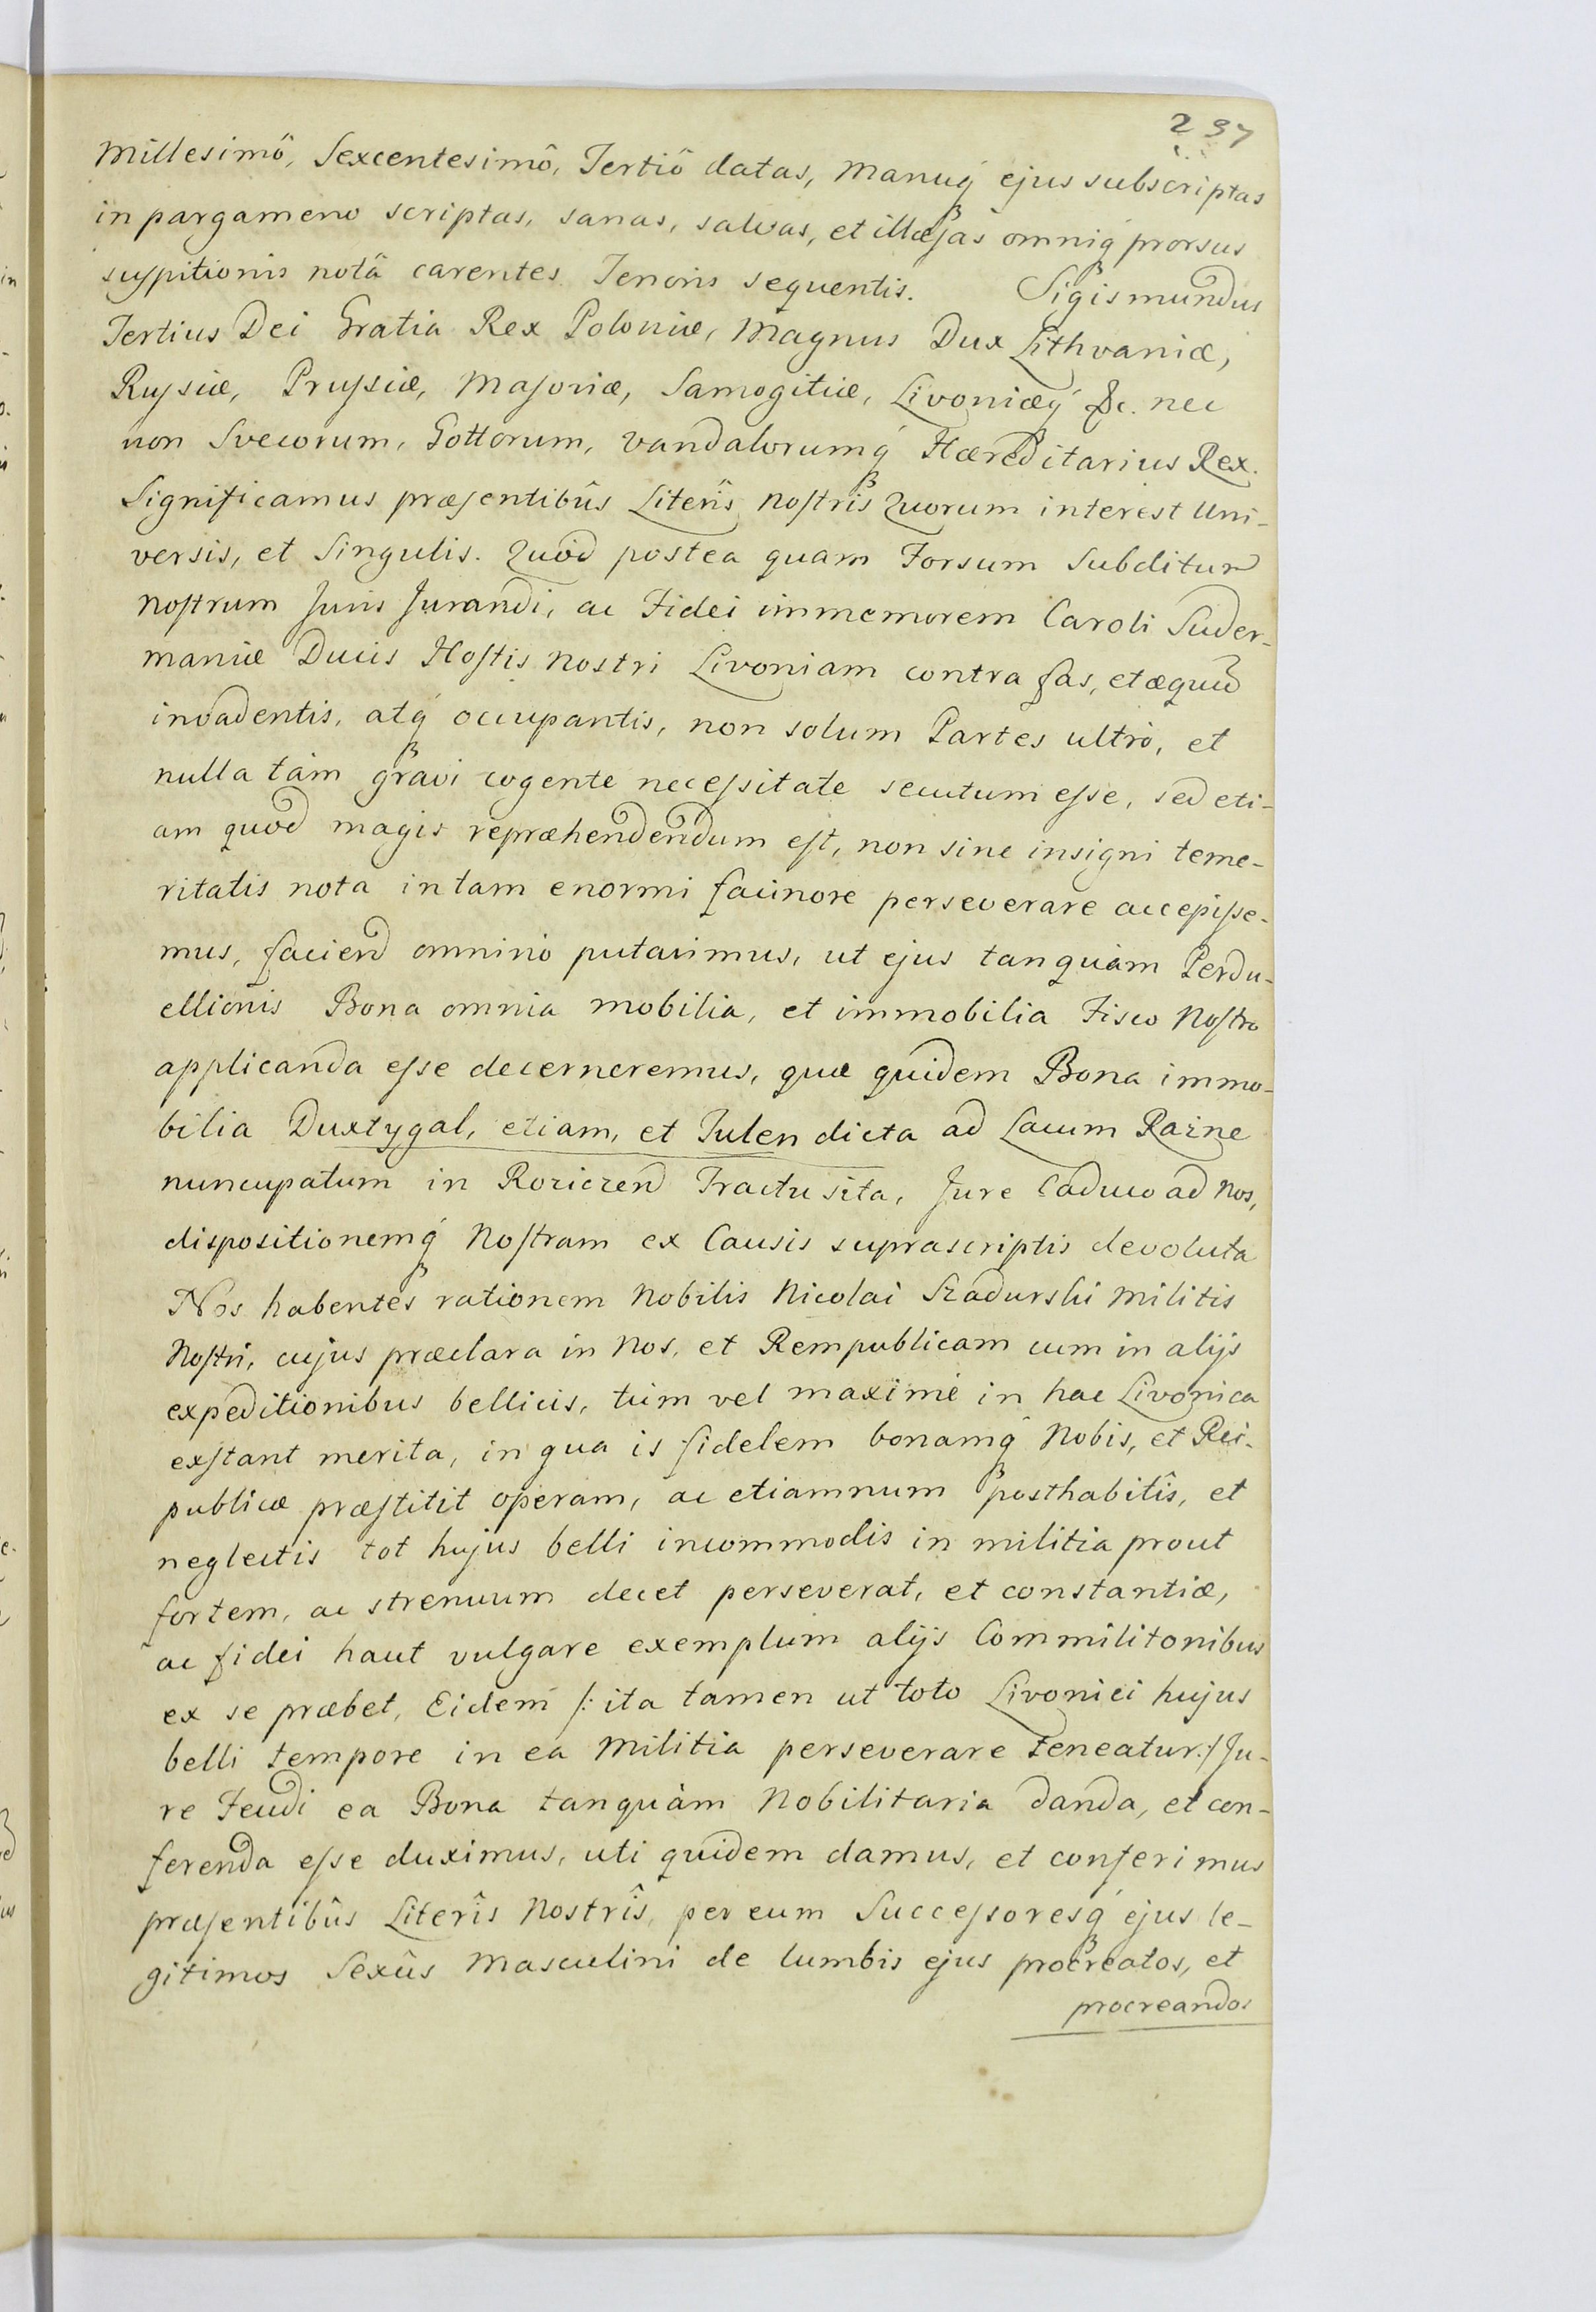 237
Millesimô, Sexcentesimô, Tertiô datas, Manuq́ ejus subscriptas
in pargameno scriptas, sanas, salvas, et illæsas omniq́ prorsus
suspitionis notâ carentes. Tenoris sequentis. Sigismundus
Tertius Dei Gratia Rex Poloniæ, Magnus Dux Lithvaniæ,
Russiæ, Prussiæ, Masoviæ, Samogitiæ, Livoniæq́ &c. nec
non Svecorum, Gottorum, Vandalorumq́ Hæreditarius Rex.
Significamus præsentibûs Literîs Nostrîs Quorum interest Uni-
versis, et Singulis. Quòd postea quam Forsum Subditum
Nostrum Juris Jurandi, ac Fidei immemorem Caroli Suder-
maniæ Ducis Hostis Nostri Livoniam contra fas, et æquũ
invadentis, atq́ occupantis, non solum Partes ultrò, et
nulla tàm gravi cogente necessitate secutum esse, sed eti-
am quod magis repræhendendum est, non sine insigni teme-
ritatis nota in tam enormi facinore perseverare accepisse-
mus, faciend omninò putavimus, ut ejus tanquàm Perdu-
ellionis Bona omnia mobilia, et immobilia Fisco Nostro
applicanda esse decerneremus, quæ quidem Bona immo-
bilia Duxtygal, etiam, et Tulen dicta ad Lacum Razne
nuncupatum in Roziczen Tractu sita, Jure Caduco ad Nos,
dispositionemq́ Nostram ex Causis suprascriptis devoluta
Nos habentes rationem Nobilis Nicolai Szadurski Militis
Nostri, cujus præclara in Nos, et Rempublicam cum in alijs
expeditionibus bellicis, tùm vel maximè in hac Livonica
exstant merita, in qua is fidelem bonamq́ Nobis, et Rei-
publicæ præstitit operam, ac etiamnum posthabitîs, et
neglectis tot hujus belli incommodis in militia prout
fortem, ac strenuum decet perseverat, et constantiæ,
ac fidei haut vulgare exemplum alijs Commilitonibus
ex se præbet, Eidem /: ita tamen ut toto Livonici hujus
belli tempore in ea Militia perseverare teneatur :/ Ju-
re Feudi ea Bona tanquàm Nobilitaria danda, et con-
ferenda esse duximus, uti quidem damus, et conferimus
præsentibûs Literîs Nostrîs, per eum Successoresq́ ejus le-
gitimos Sexûs Masculini de lumbis ejus procreatos, et
procreandos